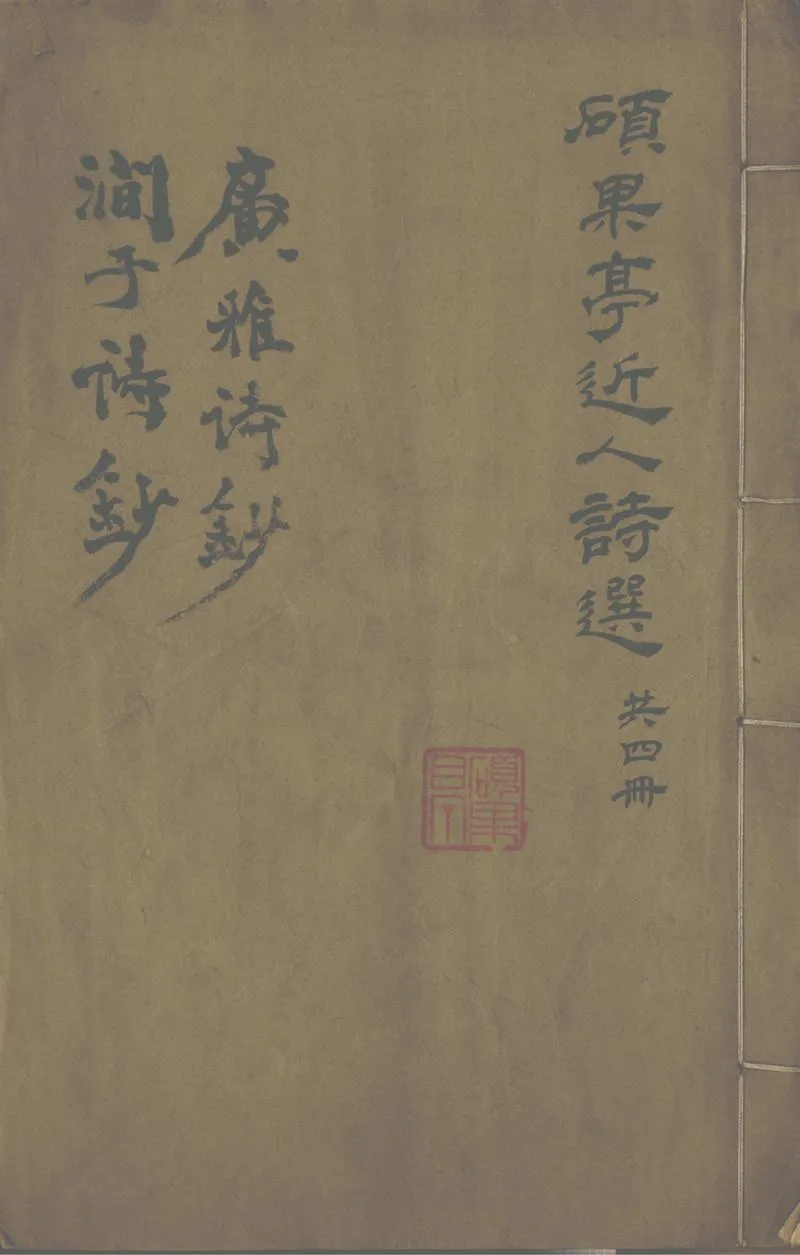 碩果亭近人詩選 共四冊
廣雅诗鈔
澗于诗鈔
碩果